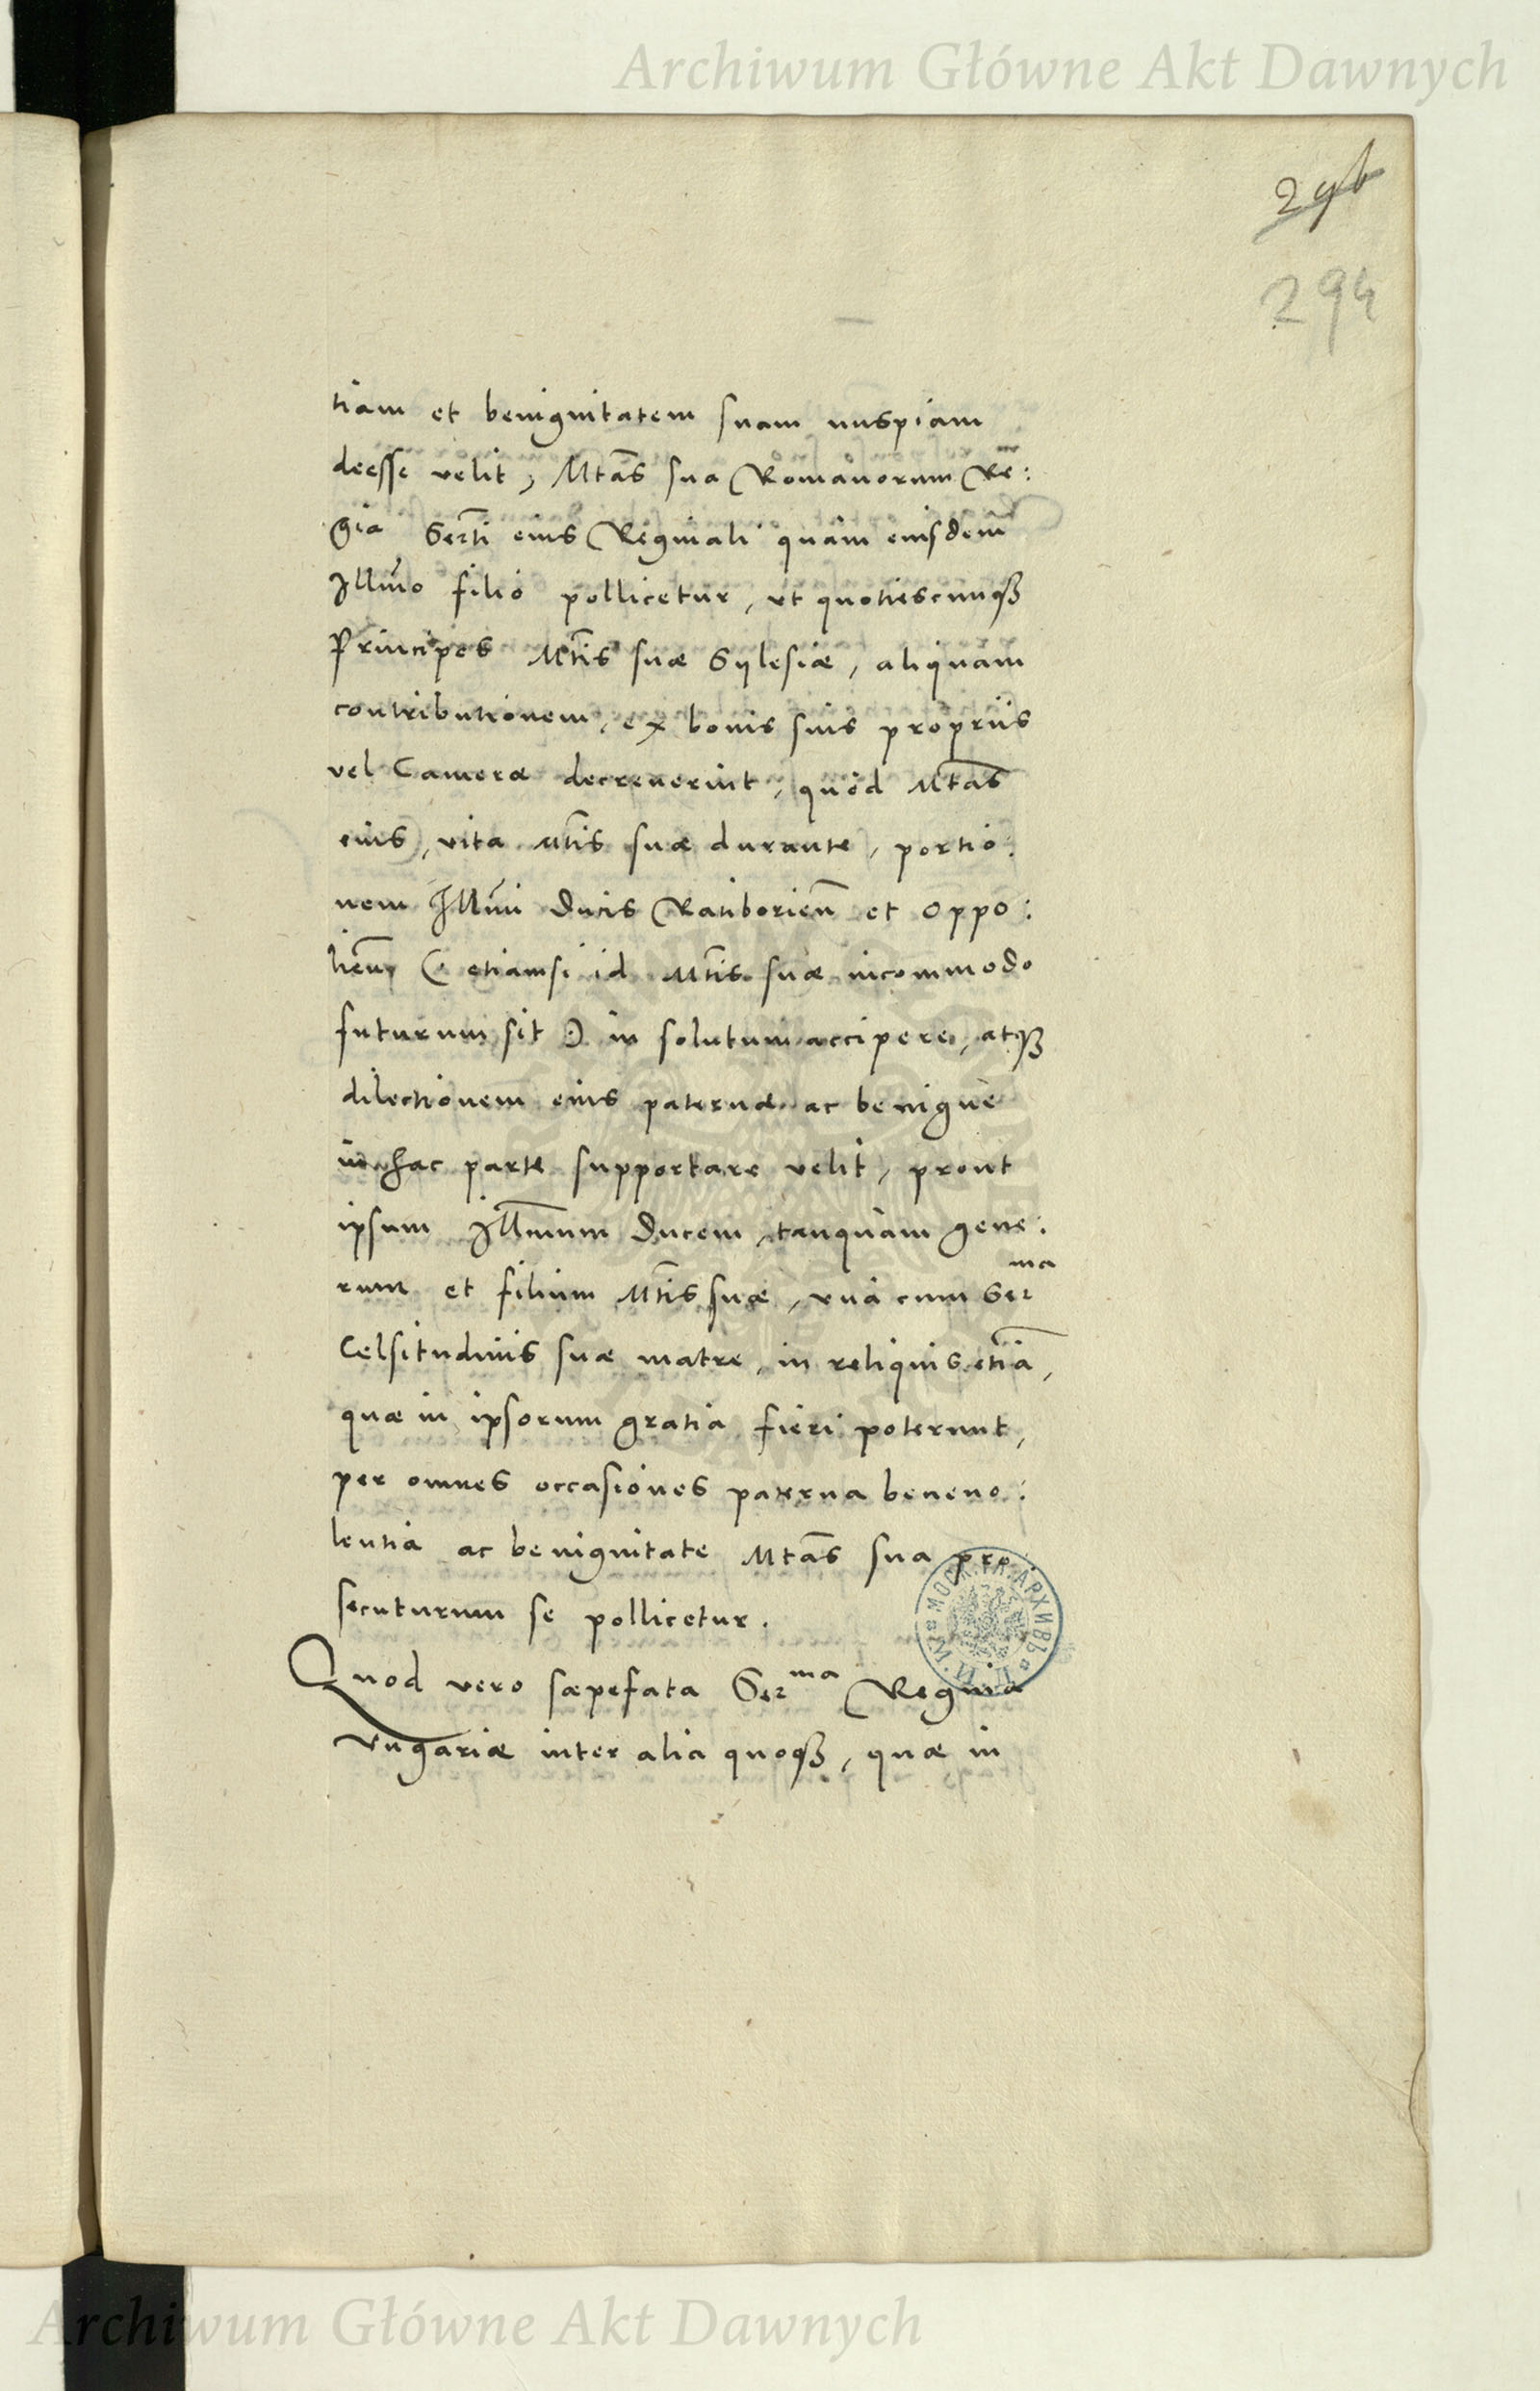 Archiwum Główne Akt Dawnych
296
294
tiam et benignitatem suam nuspiam
deesse velit, Mtas sua Romanorum Re:
gia Serti eius Reginali quàm eiusdem
Illmo filio pollicetur, ut quotiescunqꝫ
Principes Mtis suæ Sylesiæ, aliquam
contributionem, ex bonis suis proprijs
vel Cameræ decreuerint, quòd Mtas
eius, vita Mtis suæ durante, portio:
nem Illmi Ducis Ratiborien̄ et Oppo:
lien̄ (: etiamsi id Mtis suæ incommodo
futurum sit :) in solutum accipere, atqꝫ
dilectionem eius paternè ac benignè
in hac parte supportare velit, prout
ipsum Illmum Ducem, tanquàm gene:
rum et filium Mtis suæ, vnà cum Serma
Celsitudinis suæ matre, in reliquis etiā,
quæ in ipsorum gratia fieri poterunt,
per omnes occasiones paterna beneuo:
lentia ac benignitate Mtas sua pro:
secuturum se pollicetur.
Quod vero sæpefata Serma Regina
Vngariæ inter alia quoqꝫ, quæ in
МОСК. ГЛ. АРХИВЪ М. И. Д.
Archiwum Główne Akt Dawnych